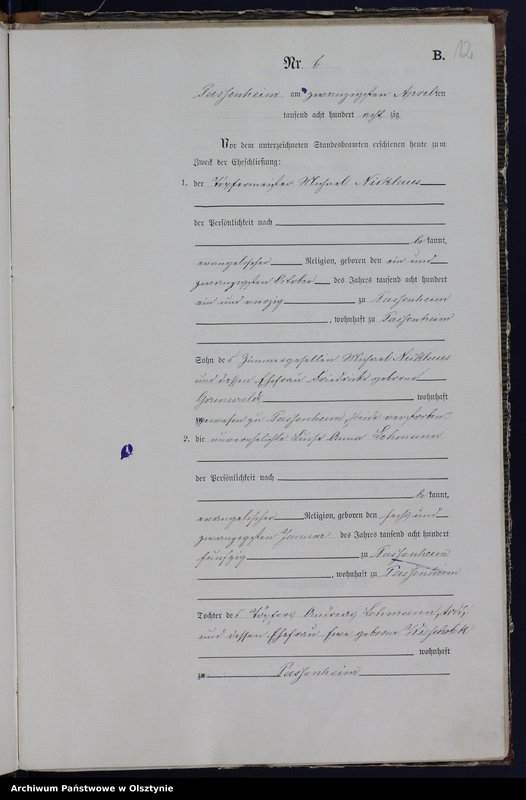 B.
12
Nr. 6
Passenheim am zwanzigsten April ten
tausend acht hundert acht zig.
Vor dem unterzeichneten Standesbeamten erschienen heute zum
Zweck der Eheschließung:
1. der Töpfermeister Michael Nickhaus
der Persönlichkeit nach
be kannt,
evangelischer Religion, geboren den ein und
zwanzigsten October des Jahres tausend acht hundert
ein und vierzig zu Passenheim
, wohnhaft zu Passenheim
Sohn des Zimmergesellen Michael Nickhaus
und dessen Ehefrau Friedricke geborne
Grunwald wohnhaft
gewesen zu Passenheim, beide verstorben.
2. die unverehelichte Luise Anna Lehmann
der Persönlichkeit nach
be kannt,
evangelischer Religion, geboren den sechs und
zwanzigsten Januar des Jahres tausend acht hundert
fünfzig zu Passenheim
, wohnhaft zu Passenheim
Tochter des Töpfers Andreas Lehmann,
und dessen Ehefrau geborne
wohnhaft
zu Passenheim
Archiwum Państwowe w Olsztynie